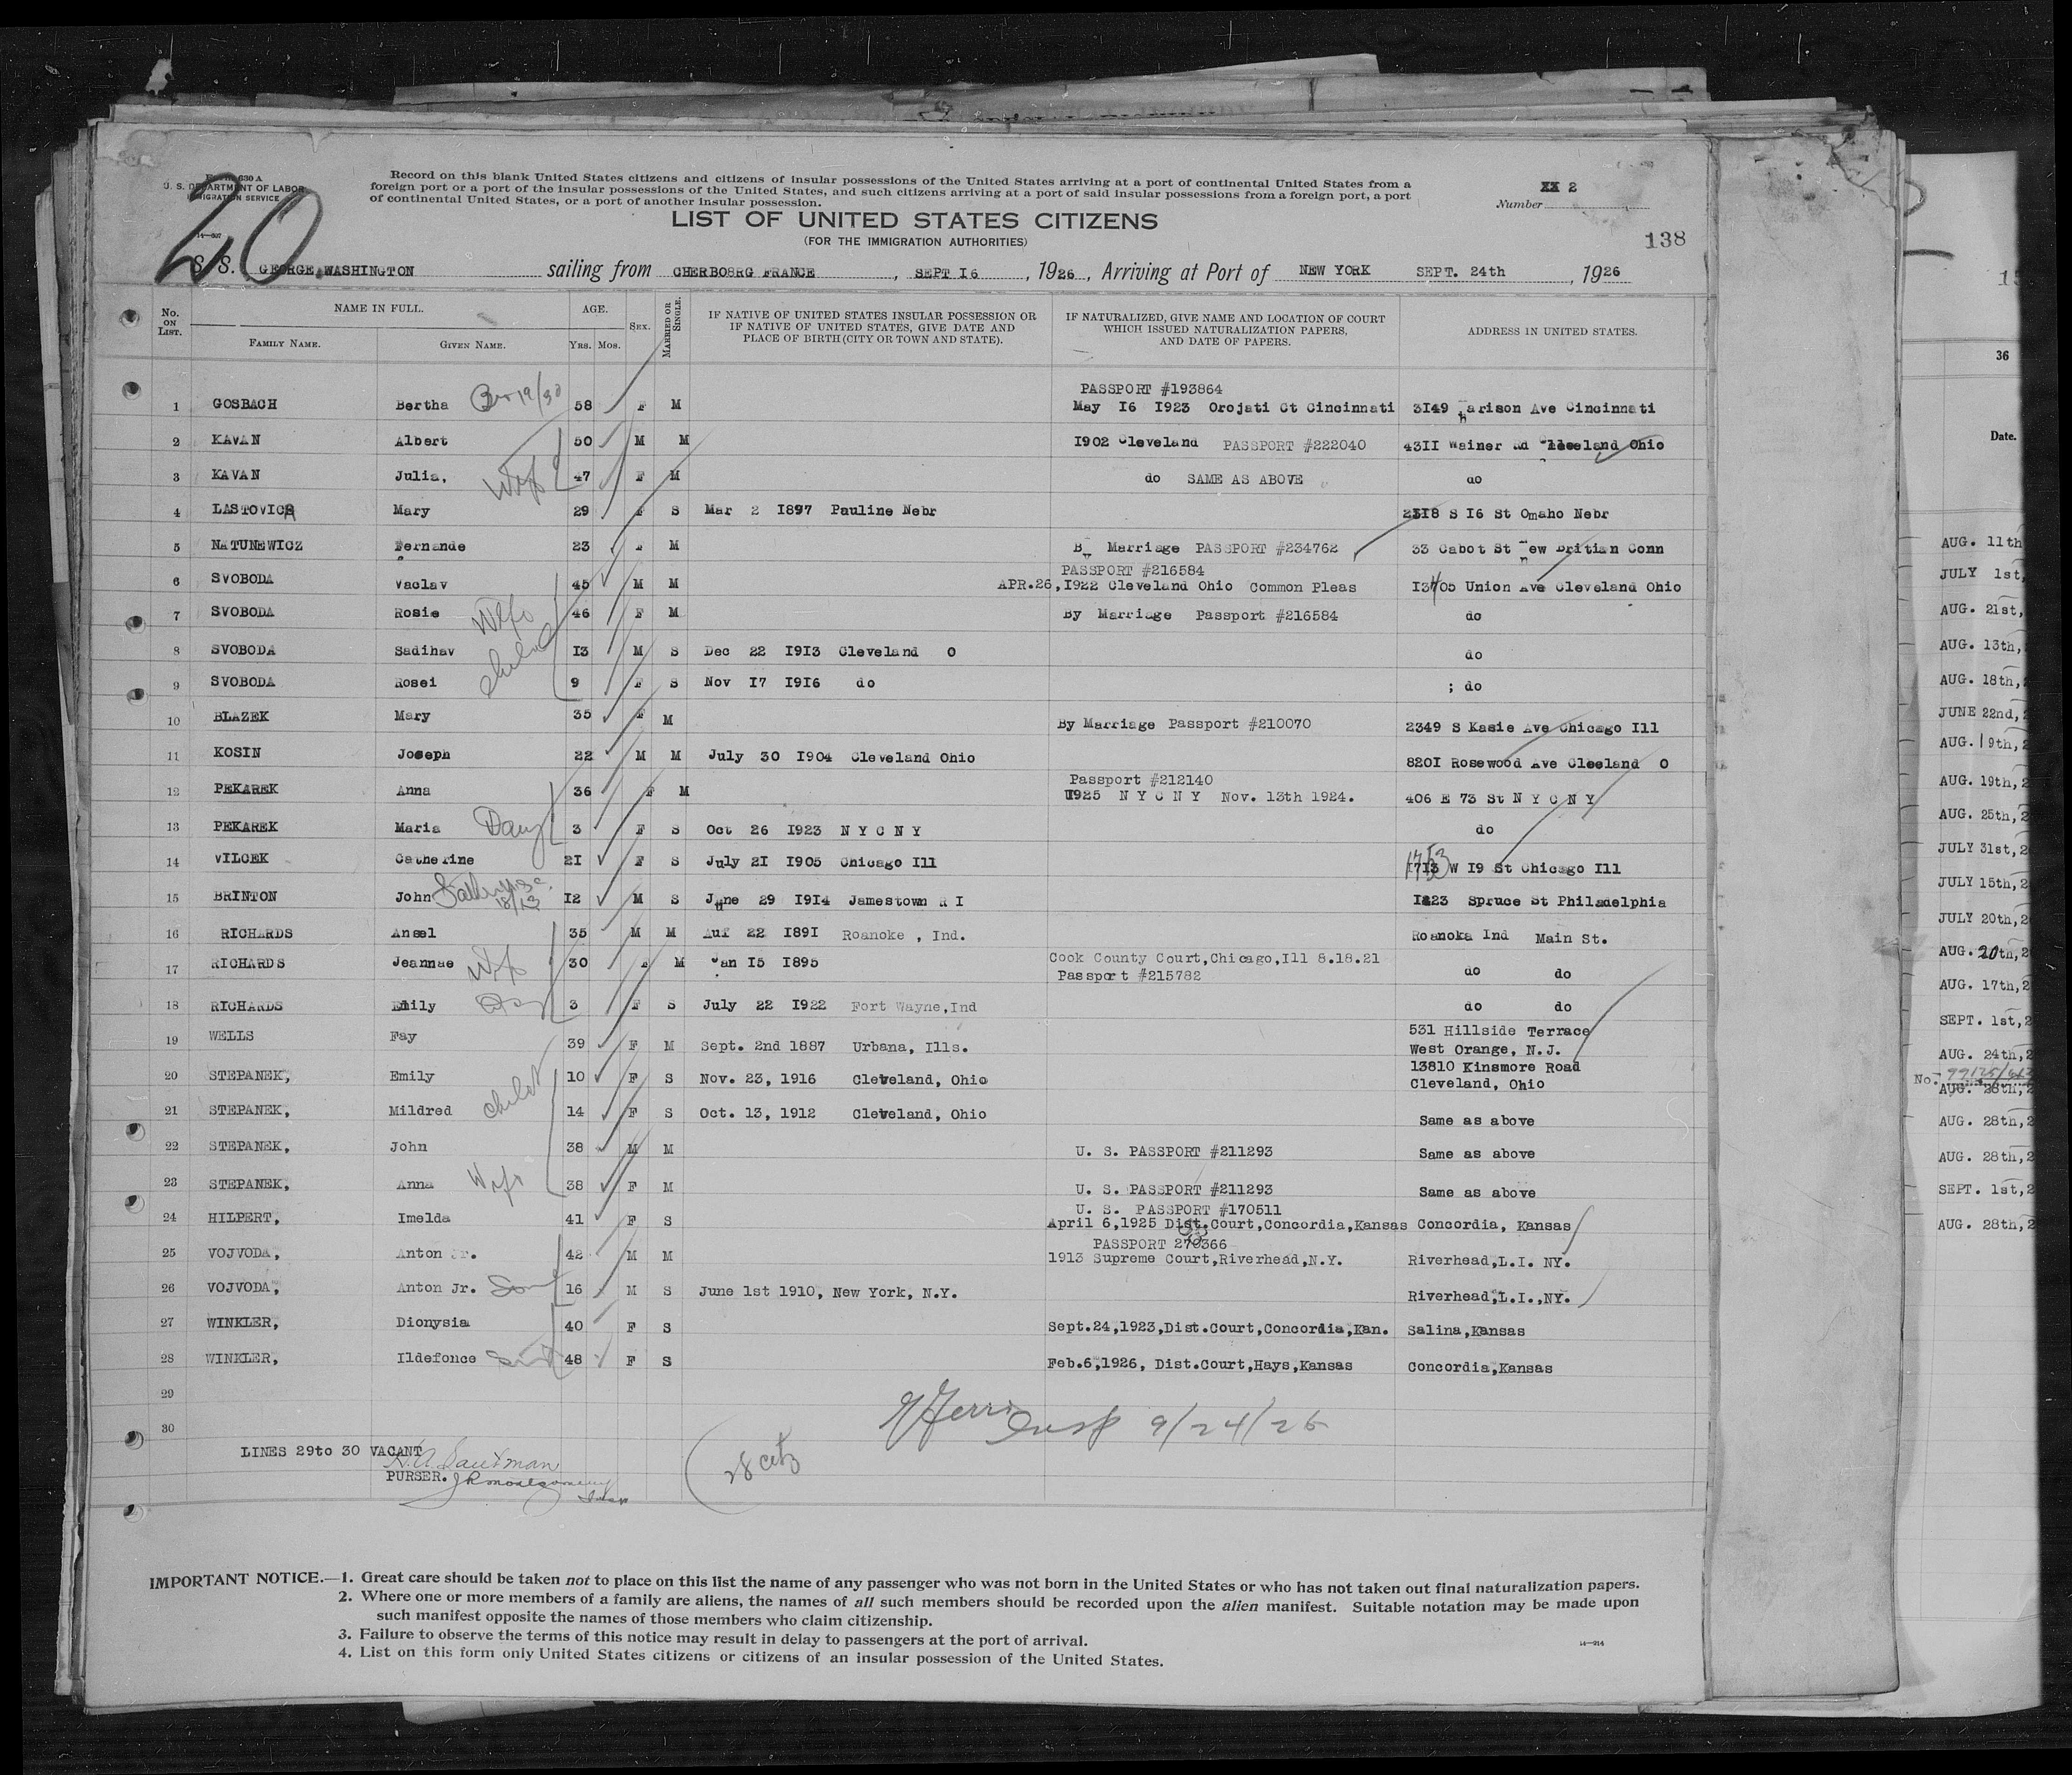 Form 630 A
U. S. DEPARTMENT OF LABOR
IMMIGRATION SERVICE
20
Record on this blank United States citizens and citizens of insular possessions of the United States arriving at a port of continental United States from a
foreign port or a port of the insular possessions of the United States, and such citizens arriving at a port of said insular possessions from a foreign port, a port
of continental United States, or a port of another insular possession.
XX 2
Number
LIST OF UNITED STATES CITIZENS
(FOR THE IMMIGRATION AUTHORITIES)
138
S. S. GEORGE WASHINGTON sailing from CHERBOSRG FRANCE, SEPT I6, 1926, Arriving at Port of NEW YORK SEPT. 24th, 1926
No. ON LIST. NAME IN FULL. FAMILY NAME. GIVEN NAME. AGE. Yrs. Mos. SEX. MARRIED OR SINGLE. IF NATIVE OF UNITED STATES INSULAR POSSESSION OR IF NATIVE OF UNITED STATES, GIVE DATE AND PLACE OF BIRTH (CITY OR TOWN AND STATE). IF NATURALIZED, GIVE NAME AND LOCATION OF COURT WHICH ISSUED NATURALIZATION PAPERS, AND DATE OF PAPERS. ADDRESS IN UNITED STATES.
36
Date.
PASSPORT #193864
1 GOSBACH Bertha 58 F M May I6 I923 Orojati Ct Cincinnati 3I49 Harison Ave Cincinnati
2 KAVAN Albert 50 M M I902 Cleveland PASSPORT #222040 43II Wainer Rd Cleveland Ohio
3 KAVAN Julia, Wife 47 F M do SAME AS ABOVE do
4 LASTOVICA Mary 29 F S Mar 2 I897 Pauline Nebr 23I8 S I6 St Omaho Nebr
5 NATUNEWICZ Fernande 23 F M By Marriage PASSPORT #234762 33 Cabot St New Britian Conn
PASSPORT #216584
6 SVOBODA Vaclav 45 M M APR.26,I922 Cleveland Ohio Common Pleas I3405 Union Ave Cleveland Ohio
7 SVOBODA Rosie Wife 46 F M By Marriage Passport #216584 do
8 SVOBODA Sadihav I3 M S Dec 22 I9I3 Cleveland O do
9 SVOBODA Rosei 9 F S Nov I7 I9I6 do ; do
10 BLAZEK Mary 35 F M By Marriage Passport #210070 2349 S Kasie Ave Chicago Ill
11 KOSIN Joseph 22 M M July 30 I904 Cleveland Ohio 820I Rosewood Ave Cleeland O
Passport #212140
12 PEKAREK Anna 36 F M I925 N Y C N Y Nov. 13th 1924. 406 E 73 St N Y C N Y
13 PEKAREK Maria Daug 3 F S Oct 26 I923 N Y C N Y do
14 VILCEK Catherine 2I F S July 2I I905 Chicago Ill 1753 W I9 St Chicago Ill
15 BRINTON John I2 M S June 29 I9I4 Jamestown R I I823 Spruce St Philadelphia
16 RICHARDS Ansel 35 M M Auf 22 I89I Roanoke , Ind. Roanoka Ind Main St.
17 RICHARDS Jeannae Wife 30 F M Jan I5 I895 Cook County Court,Chicago,Ill 8.18.21 do do
Passport #215782
18 RICHARDS Emily 3 F S July 22 I922 Fort Wayne,Ind do do
19 WELLS Fay 39 F M Sept. 2nd 1887 Urbana, Ills. 531 Hillside Terrace
West Orange, N.J.
20 STEPANEK, Emily 10 F S Nov. 23, 1916 Cleveland, Ohio 13810 Kinsmore Road
Cleveland, Ohio
21 STEPANEK, Mildred child 14 F S Oct. 13, 1912 Cleveland, Ohio Same as above
22 STEPANEK, John 38 M M U. S. PASSPORT #211293 Same as above
23 STEPANEK, Anna Wife 38 F M U. S. PASSPORT #211293 Same as above
U. S. PASSPORT #170511
24 HILPERT, Imelda 41 F S April 6,1925 Dist.Court,Concordia,Kansas Concordia, Kansas
PASSPORT 270366
25 VOJVODA, Anton Jr. 42 M M 1913 Supreme Court,Riverhead,N.Y. Riverhead,L.I. NY.
26 VOJVODA, Anton Jr. Son 16 M S June 1st 1910, New York, N.Y. Riverhead,L.I.,NY.
27 WINKLER, Dionysia 40 F S Sept.24,1923,Dist.Court,Concordia,Kan. Salina,Kansas
28 WINKLER, Ildefonce 48 F S Feb.6,1926, Dist.Court,Hays,Kansas Concordia,Kansas
29
30
Insp 9/24/26
LINES 29to 30 VACANT
28
PURSER.
AUG. 11th
JULY 1st,
AUG. 21st,
AUG. 13th,
AUG. 18th,
JUNE 22nd,
AUG. 19th,
AUG. 19th,
AUG. 25th,
JULY 31st,
JULY 15th,
JULY 20th,
AUG. 20th,
AUG. 17th,
SEPT. 1st,
AUG. 24th,
No.
AUG. 28th,
AUG. 28th,
AUG. 28th,
SEPT. 1st,
AUG. 28th,
IMPORTANT NOTICE.—1. Great care should be taken not to place on this list the name of any passenger who was not born in the United States or who has not taken out final naturalization papers.
2. Where one or more members of a family are aliens, the names of all such members should be recorded upon the alien manifest. Suitable notation may be made upon
such manifest opposite the names of those members who claim citizenship.
3. Failure to observe the terms of this notice may result in delay to passengers at the port of arrival.
4. List on this form only United States citizens or citizens of an insular possession of the United States.